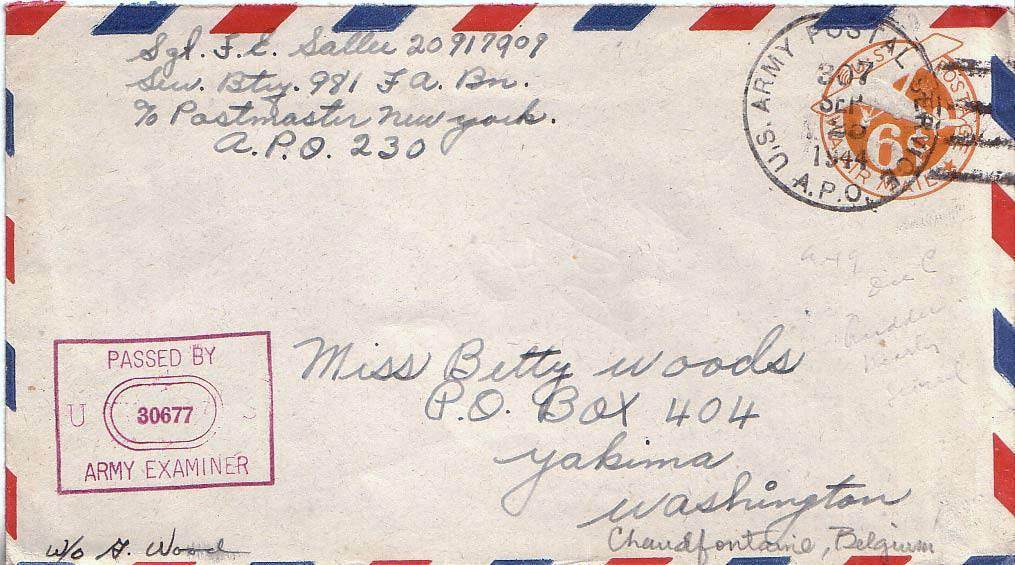 Sgt. F. E. Sallee 20917909
Serv. Btry. 981 F A. Bn.
% Postmaster New york.
A.P.O. 230
U.S. ARMY POSTAL SERVICE
A.P.O.
307
SEP
1944
U.S. POSTAGE
6¢
AIR MAIL
PASSED BY
U S
30677
ARMY EXAMINER
Miss Betty Woods
P.O. BOX 404
yakima
Washington
Chaudfontaine, Belgium
w/o H. Wood
Die C
Rudder